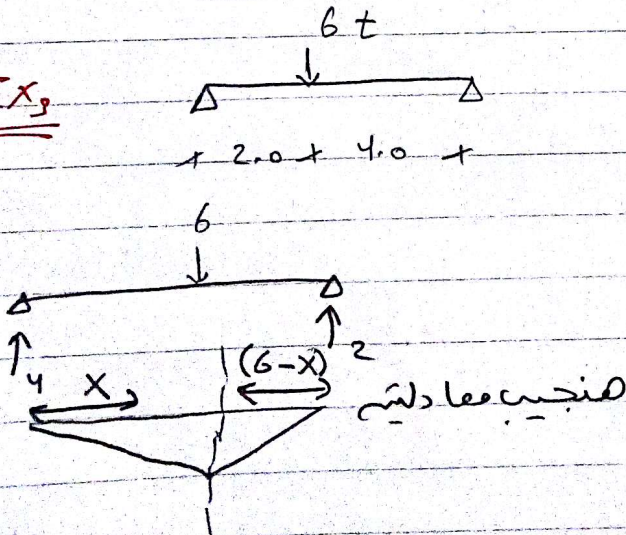 6 t
Ex3
2.0 4.0
6
4 2
X (6-X)
هنجيب معادلتين